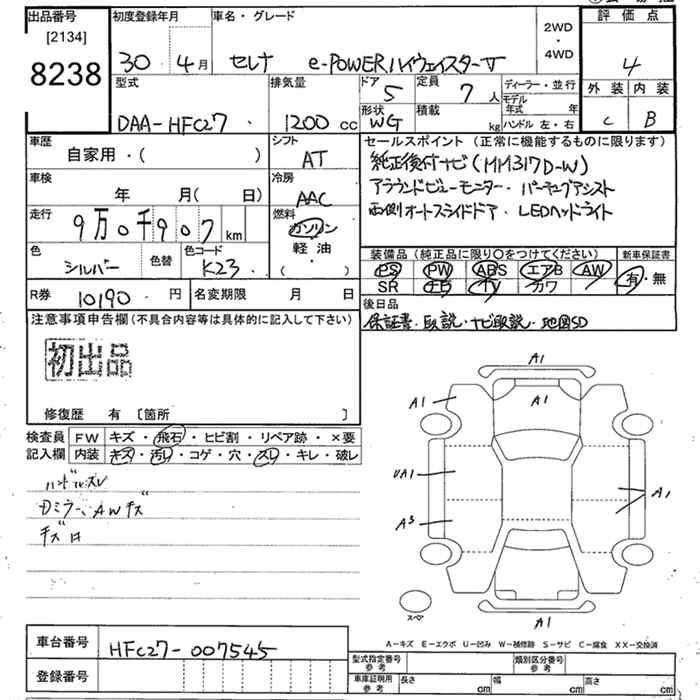 出品番号 初度登録年月 車名・グレード 2WD 評価点
[2134] ・
8238 30 4月 セレナ e-POWERハイウェイスターV 4WD 4
型式 排気量 ドア 5 定員 7人 ディーラー・並行 外装 内装
DAA-HFC27 1200cc 形状 WG 積載 kg モデル年式 年 C B
ハンドル 左・右
車歴 シフト セールスポイント(正常に機能するものに限ります)
自家用・( ) AT 純正後付ナビ(MM317D-W)
車検 冷房 アラウンドビューモニター・パーキングアシスト
年 月( 日) AAC 両側オートスライドドア・LEDヘッドライト
走行 燃料
9万0千907km ガソリン 装備品(純正品に限り○をつけてください) 新車保証書
色 色替 色コード 軽油・ PS PW ABS エアB AW 有・無
シルバー K23 ( ) SR TV カワ
R券 10190円 名変期限 月 日 後日品
注意事項申告欄(不具合内容等は具体的に記入して下さい) 保証書・取説・ナビ取説・地図SD
初出品
修復歴 有 〔箇所 〕
検査員 FW キズ・飛石・ヒビ割・リペア跡・×要
記入欄 内装 キズ・汚れ・コゲ・穴・スレ・キレ・破レ
ハンドルスレ
Dミラー、AWキズ
キズ
A1
A1 A1
UA1 A1
A3
スペア A1
A-キズ E-エクボ U-凹み W-補修跡 S-サビ C-腐食 XX-交換済
車台番号 HFC27-007545
登録番号 型式指定番号 参考 類別区分番号 参考
車庫証明用 参考 長さ cm 幅 cm 高さ cm